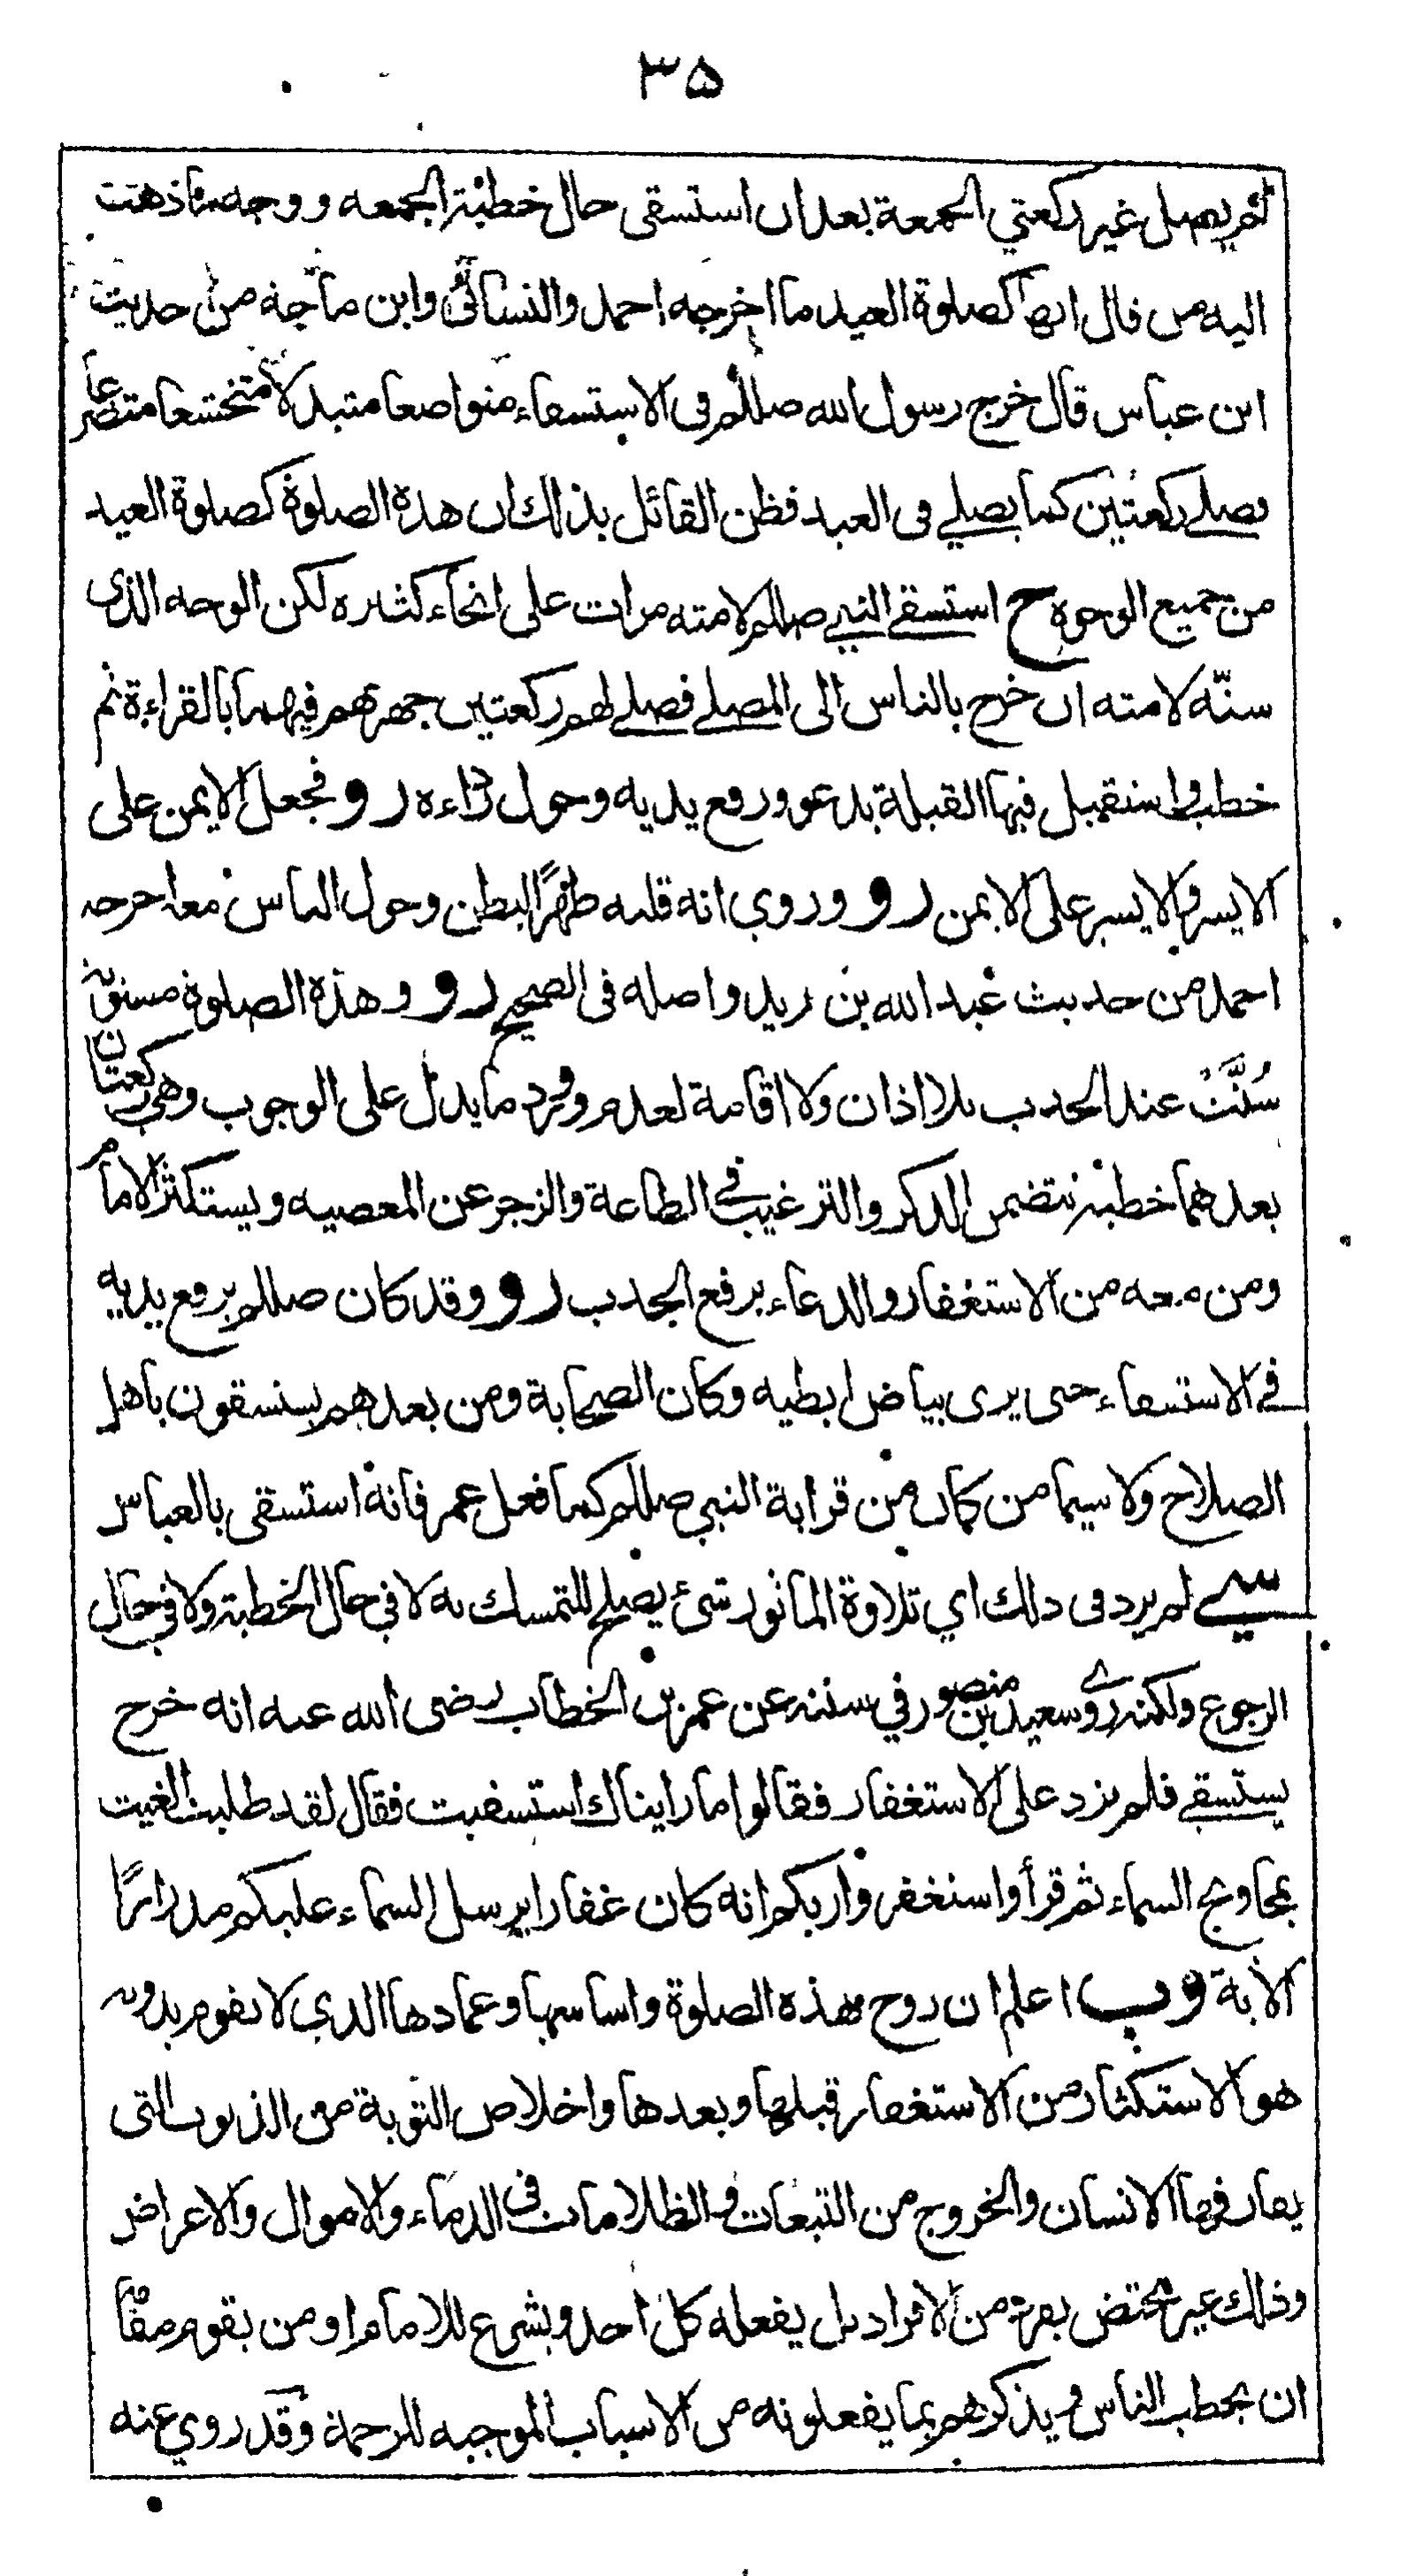 ٣٥
لم يصل غير ركعتي الجمعة بعد ان استسقى حال خطبة الجمعه و وجه ما ذهبت
اليه من قال انها كصلوة العيد ما اخرجه احمد والنسائي وابن ماجة من حديث
ابن عباس قال خرج رسول الله صللم فى الاستسقاء متواضعا متبدلا متخشعا متضرعا
فصلے ركعتين كما يصلے فى العيد فظن القائل بذلك ان هذه الصلوة كصلوة العيد
من جميع الوجوه ح استسقے النبے صللم لامته مرات على انحاء كثيره لكن الوجه الذى
سنّه لامته ان خرج بالناس الى المصلے فصلے لهم ركعتين جهر بهم فيهما بالقراءة ثم
خطب واستقبل فيها القبلة يدعو ورفع يديه وحول رداءه ر و فجعل الايمن على
الايسر والايسر على الايمن ر و وروي انه قلبه ظهرًا لبطن وحول الناس معه اخرجه
احمد من حديث عبد الله بن زيد واصله فى الصحيح ر و و هذه الصلوة مسنونة
سُنَّتْ عند الجدب بلا اذان ولا اقامة لعدم ورود ما يدل على الوجوب وهي ركعتان
بعدهما خطبة تتضمن الذكر والترغيب في الطاعة والزجر عن المعصيه ويستكثر الامام
ومن معه من الاستغفار والدعاء برفع الجدب ر و وقد كان صللم يرفع يديه
في الاستسقاء حتى يرى بياض ابطيه وكان الصحابة ومن بعدهم يستسقون باهل
الصلاح ولا سيما من كان من قرابة النبي صللم كما فعل عمر فانه استسقى بالعباس
سے لم يرد فى ذلك اي تلاوة الماثور شئ يصلح للتمسك به لا في حال الخطبة ولا في حال
الرجوع ولكنه روے سعيد بن منصور في سننه عن عمر بن الخطاب رضى الله عنه انه خرج
يستسقے فلم يزد على الاستغفار فقالوا ما رايناك استسقيت فقال لقد طلبت الغيث
بمجاديح السماء ثم قرأ واستغفروا ربكم انه كان غفارا يرسل السماء عليكم مدرارًا
الآية و ب اعلم ان روح هذه الصلوة واساسها وعمادها الذي لا تقوم بدونه
هو الاستكثار من الاستغفار قبلها وبعدها واخلاص التوبة من الذنوب التى
يقارفها الانسان والخروج من التبعات والظلامات فى الدماء والاموال والاعراض
وذلك غير مختص بفرد من الافراد بل يفعله كل احد ويشرع للامام او من يقوم مقامه
ان يخطب الناس ويذكرهم بما يفعلونه من الاسباب الموجبه للرحمة وقد روي عنه